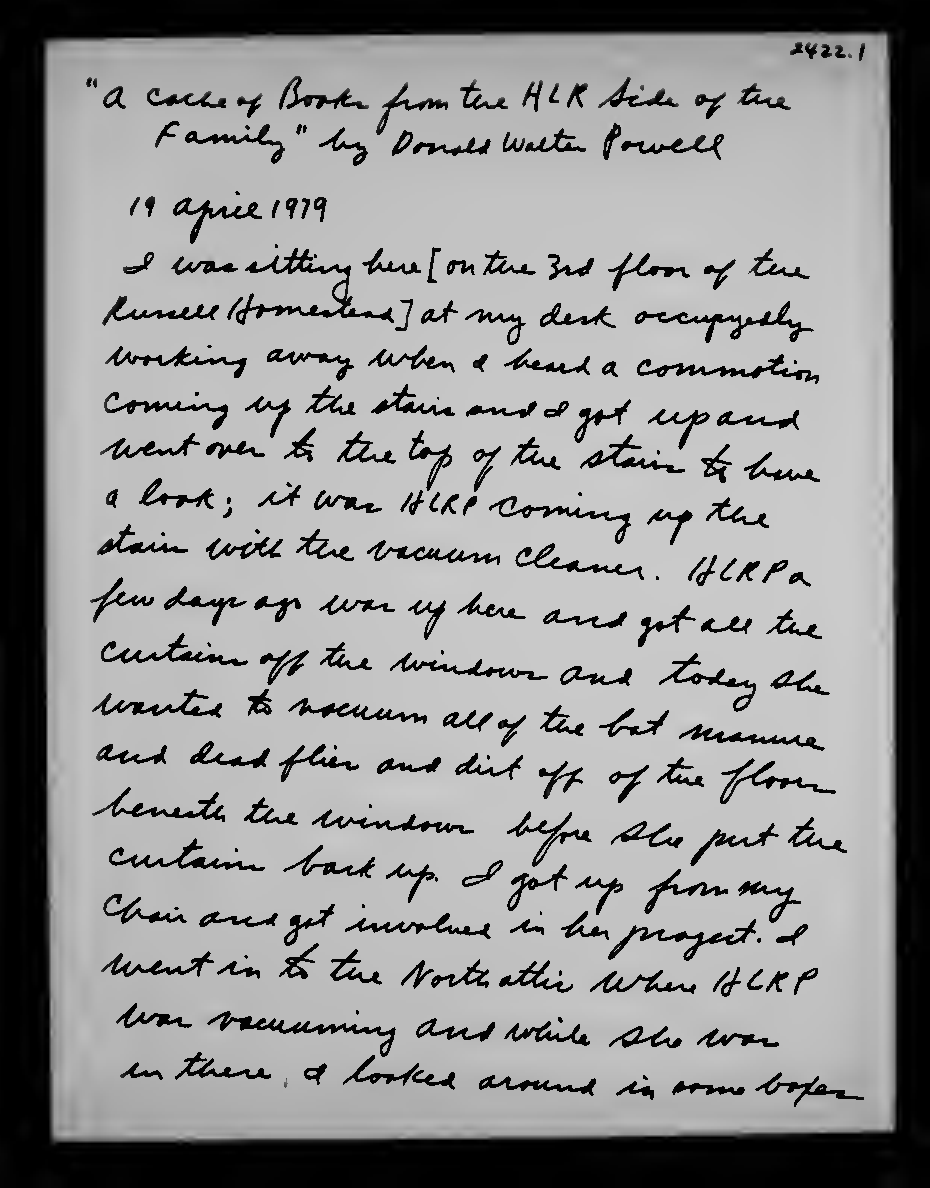 2422.1
"A Cache of Books from the HLR Side of the
Family" by Donald Walter Powell
19 April 1979
I was sitting here [on the 3rd floor of the
Russell Homestead] at my desk occupyedly
working away when I heard a commotion
coming up the stairs and I got up and
went over to the top of the stairs to have
a look; it was HLRP coming up the
stairs with the vacuum cleaner. HLRP a
few days ago was up here and got all the
curtains off the windows and today she
wanted to vacuum all of the bat manure
and dead flies and dirt off of the floors
beneath the windows before she put the
curtains back up. I got up from my
chair and got involved in her project. I
went in to the North attic where HLRP
was vacuuming and while she was
in there, I looked around in some boxes